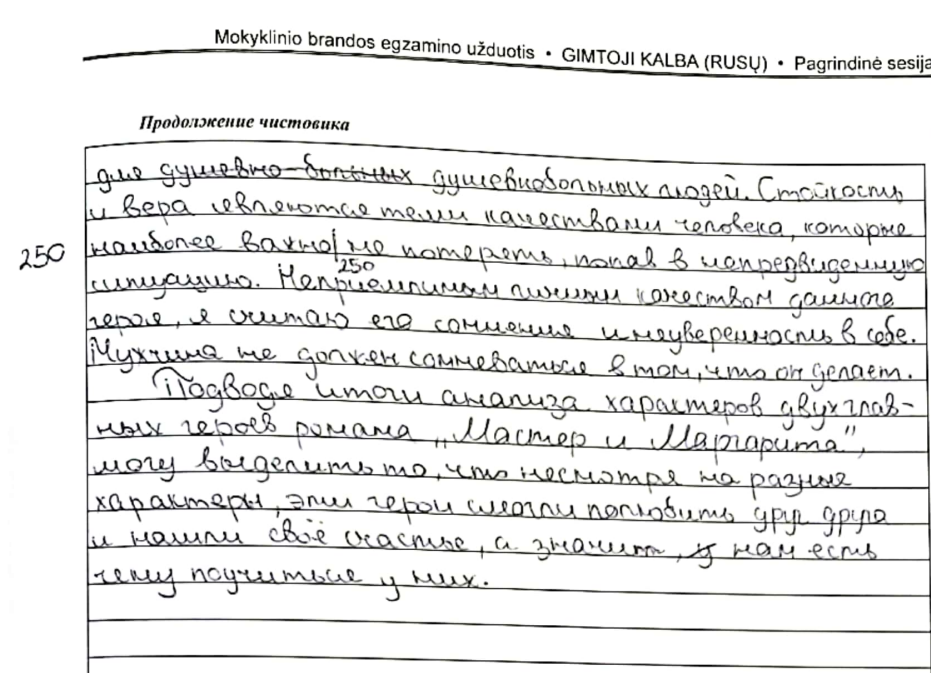 Mokyklinio brandos egzamino užduotis • GIMTOJI KALBA (RUSŲ) • Pagrindinė sesija
Продолжение чистовика
для душевно-больных душевнобольных людей. Стойкость
и вера являются теми качествами человека, которые
250 наиболее важно не потерять, попав в непредвиденную
250
ситуацию. Неприемлимым личным качеством данного
героя, я считаю его сомнения и неуверенность в себе.
Мужчина не должен сомневаться в том, что он делает.
Подводя итоги анализа характеров двух глав-
ных героев романа „Мастер и Маргарита”,
могу выделить то, что несмотря на разные
характеры, эти герои смогли полюбить друг друга
и нашли своё счастье, а значит, нам есть
чему поучиться у них.